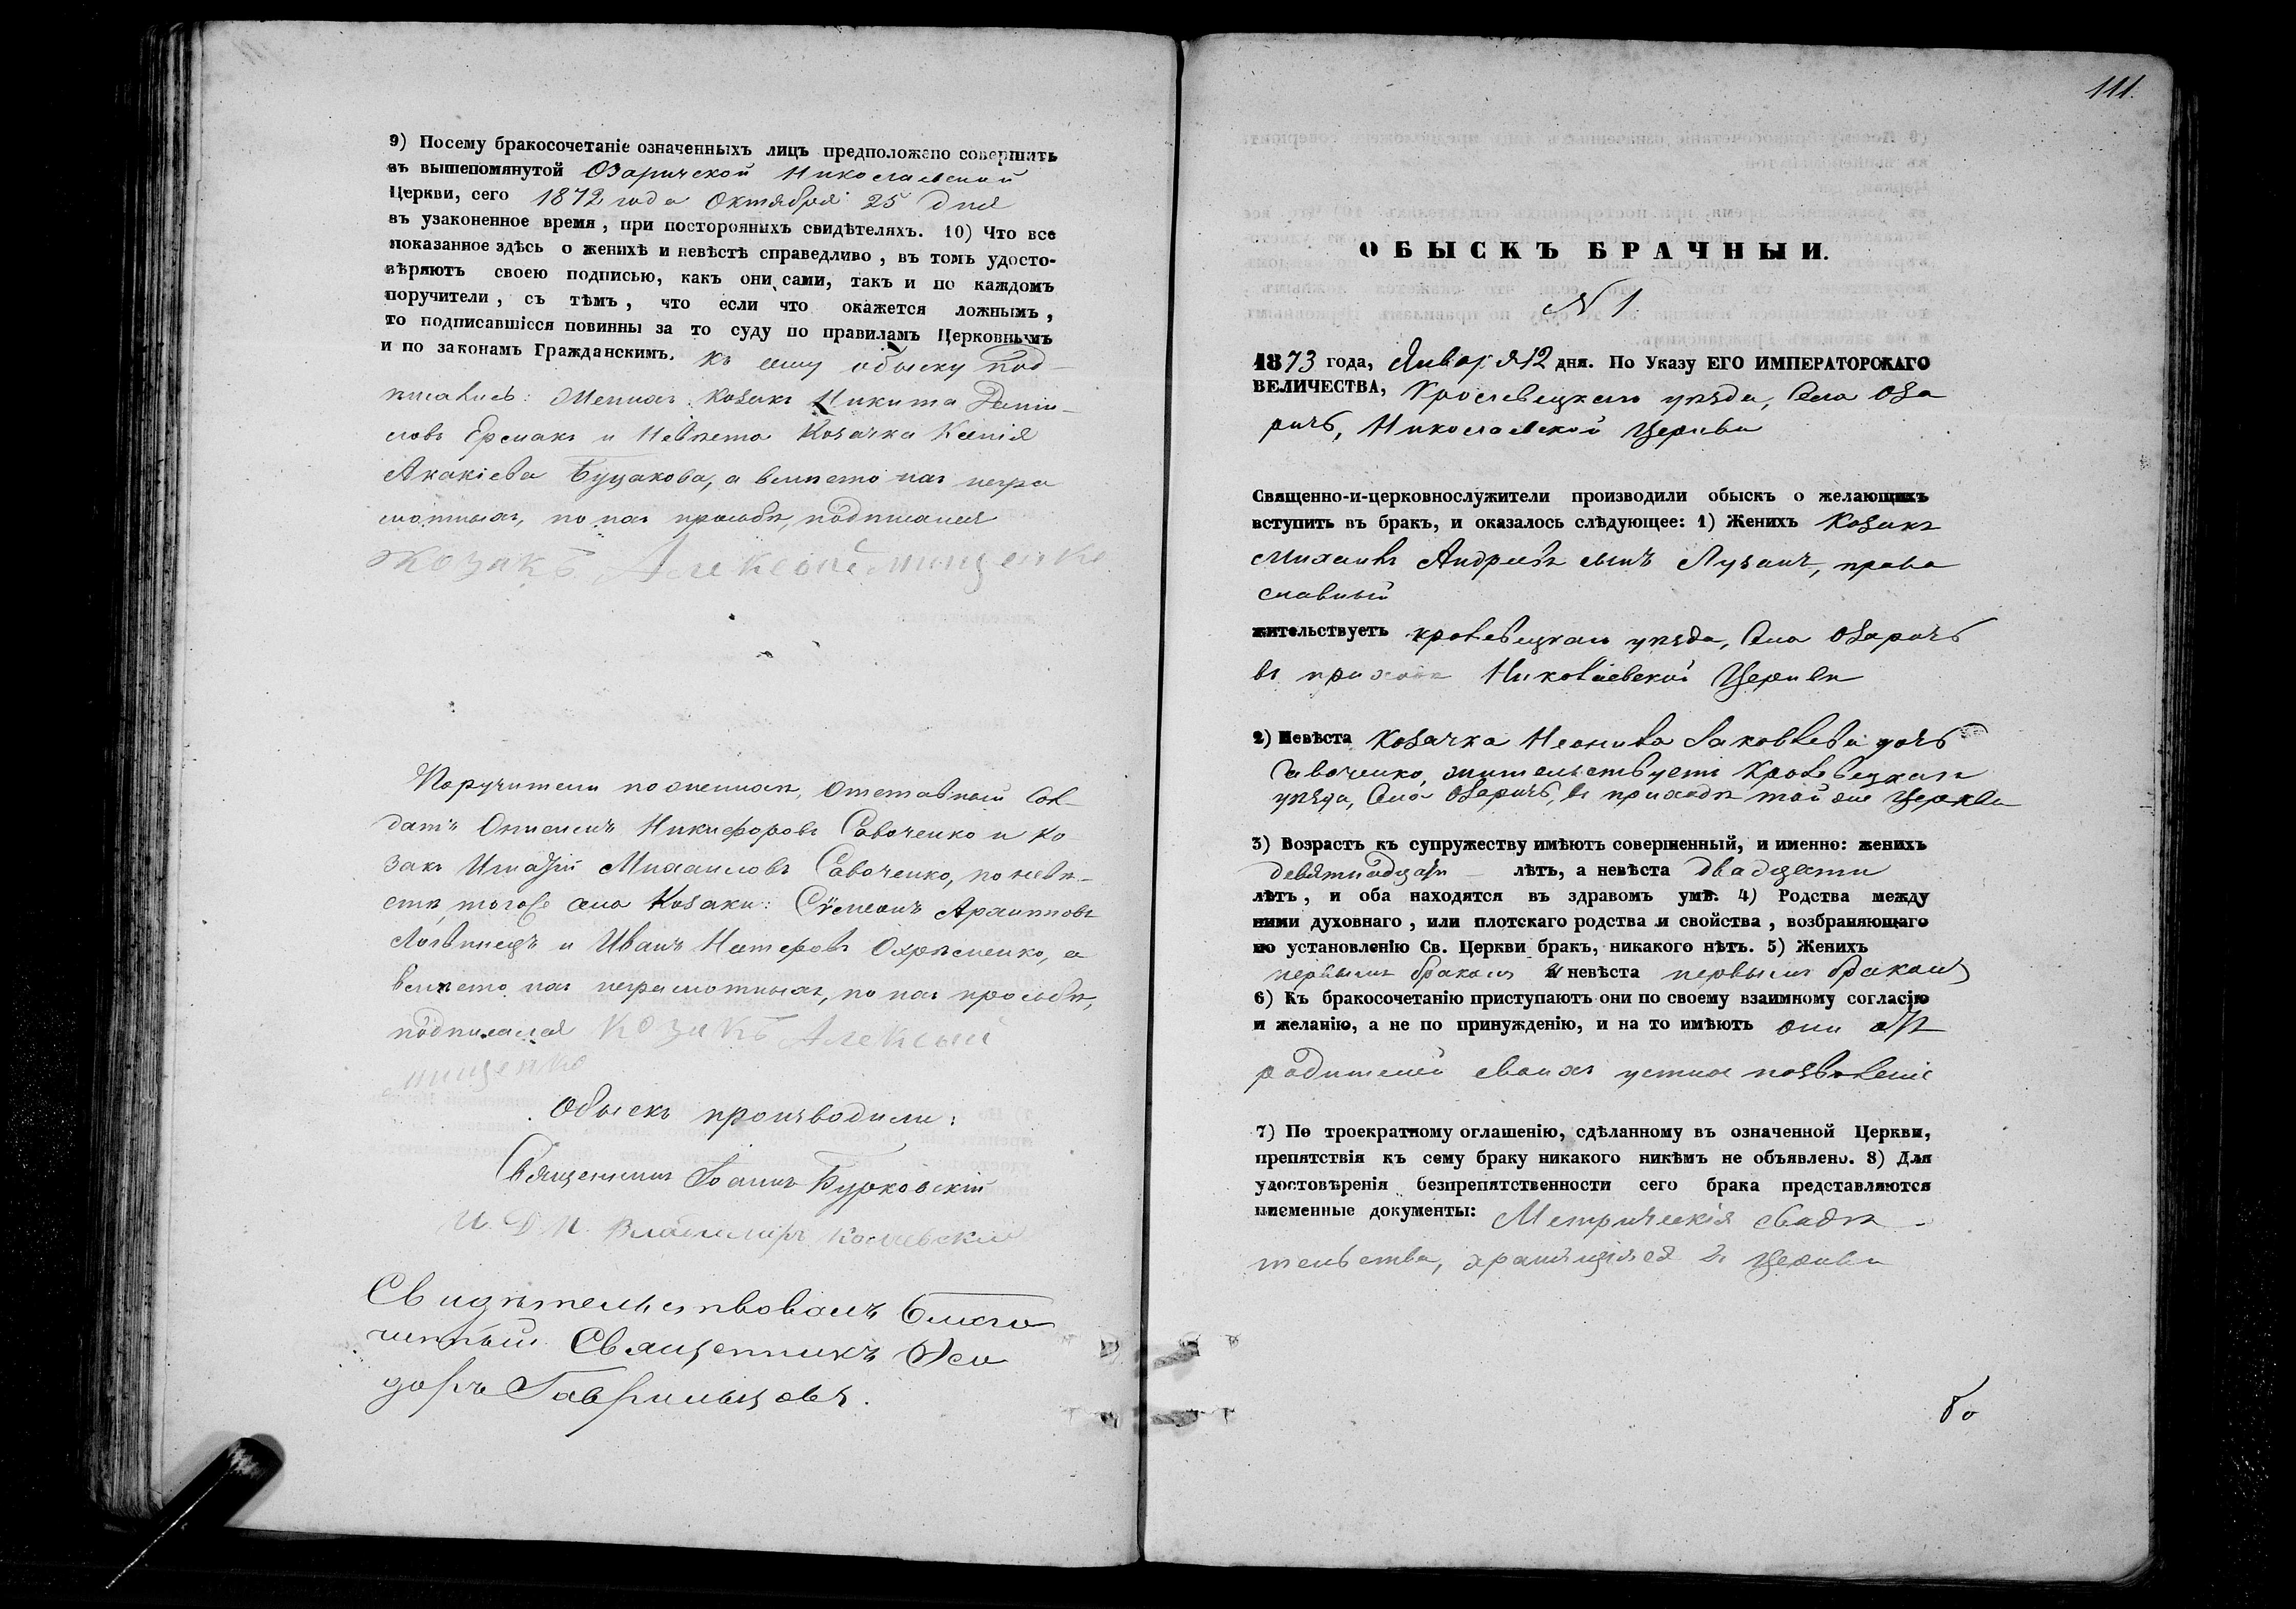 9) Посему бракосочетаніе означенныхъ лицъ предположено совершить
въ вышепомянутой Озаричской Николаевской
Церкви, сего 1872 года Октября 25 дня
въ узаконенное время, при посторонныхъ свидѣтеляхъ. 10) Что все
показанное здѣсь о женихѣ и невѣстѣ справедливо, въ томъ удосто-
вѣряютъ своею подписью, какъ они сами, такъ и по каждомъ
поручители, съ тѣмъ, что если что окажется ложнымъ,
то подписавшіеся повинны за то суду по правиламъ Церковнымъ
и по законамъ Гражданскимъ. Къ сему обыску под-
писались: Женихъ Козакъ Никита Дани-
ловъ Ермакъ и Невѣста Козачка Ксенія
Акакіева Буцакова, а вмѣсто ихъ негра
мотныхъ, по ихъ прозьбѣ, подписался
Козакъ Алексѣй Мищенко
Поручители по женихѣ, Отставной Сол-
датъ Никифоровъ Савоченко и Ко
закъ Игнатій Михаиловъ Савоченко, по невѣ-
стѣ, тогоже села Козаки: Сѵмеонъ Архиповъ
Логвинецъ и Иванъ Нестеровъ Охрѣменко, а
вмѣсто ихъ неграмотныхъ, по ихъ прозьбѣ,
подписался Козакъ Алексѣй
Мищенко
Обыскъ производили:
Священникъ Іоаннъ Бурковскій
И. Д. П. Владимиръ
Свидѣтельствовалъ Благо
чинный Священникъ Иси
доръ Гаврильцовъ.
111.
ОБЫСКЪ БРАЧНЫЙ.
N 1.
1873 года, Января 12 дня. По Указу ЕГО ИМПЕРАТОРСКАГО
ВЕЛИЧЕСТВА, Кролевецкаго уѣзда, Села Оза
ричъ, Николаевской Церкви
Священно-и-церковнослужители производили обыскъ о желающихъ
вступить въ бракъ, и оказалось слѣдующее: 1) Женихъ Козакъ
Михаилъ Андреевъ сынъ Лузанъ, право
славный
жительствуетъ Кролевецкаго уѣзда, Села Озаричъ
въ приходѣ Николаевской Церкви
2) Невѣста Козачка Неонила Іаковлева дочь
Савоченко, жительствуетъ Кролевецкаго
уѣзда, Села Озаричъ, въ приходѣ той же Церкви
3) Возрастъ къ супружеству имѣютъ совершенный, и именно: женихъ
девятнадцать лѣтъ, а невѣста двадцати
лѣтъ, и оба находятся въ здравомъ умѣ. 4) Родства между
ними духовнаго, или плотскаго родства и свойства, возбраняющаго
по установленію Св. Церкви бракъ, никакого нѣтъ. 5) Женихъ
первымъ бракомъ и невѣста первымъ бракомъ
6) Къ бракосочетанію приступаютъ они по своему взаимному согласію
и желанію, а не по принужденію, и на то имѣютъ они отъ
родителей своихъ устное позволеніе
7) По троекратному оглашенію, сдѣланному въ означенной Церкви,
препятствія къ сему браку никакого никѣмъ не объявлено. 8) Для
удостовѣренія безпрепятственности сего брака представляются
письменные документы: Метрическія свидѣ-
тельства, хранящіяся въ Церкви